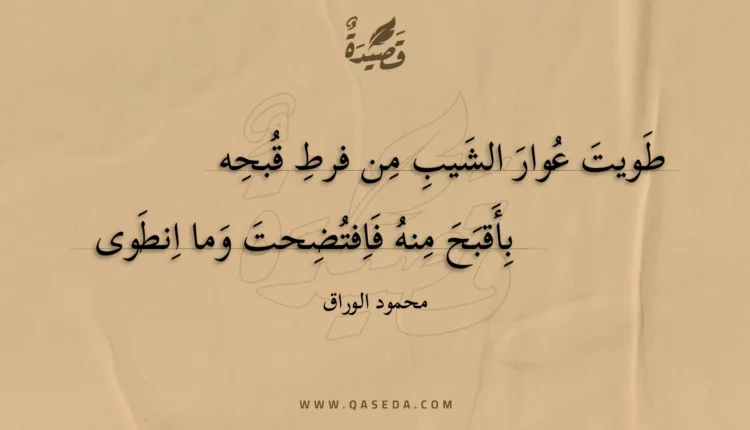 قَصِيدَةٌ
طَويتَ عُوارَ الشَيبِ مِن فرطِ قُبحِه
بِأَقبَحَ مِنهُ فَاِفتُضِحتَ وَما اِنطَوى
محمود الوراق
WWW.QASEDA.COM